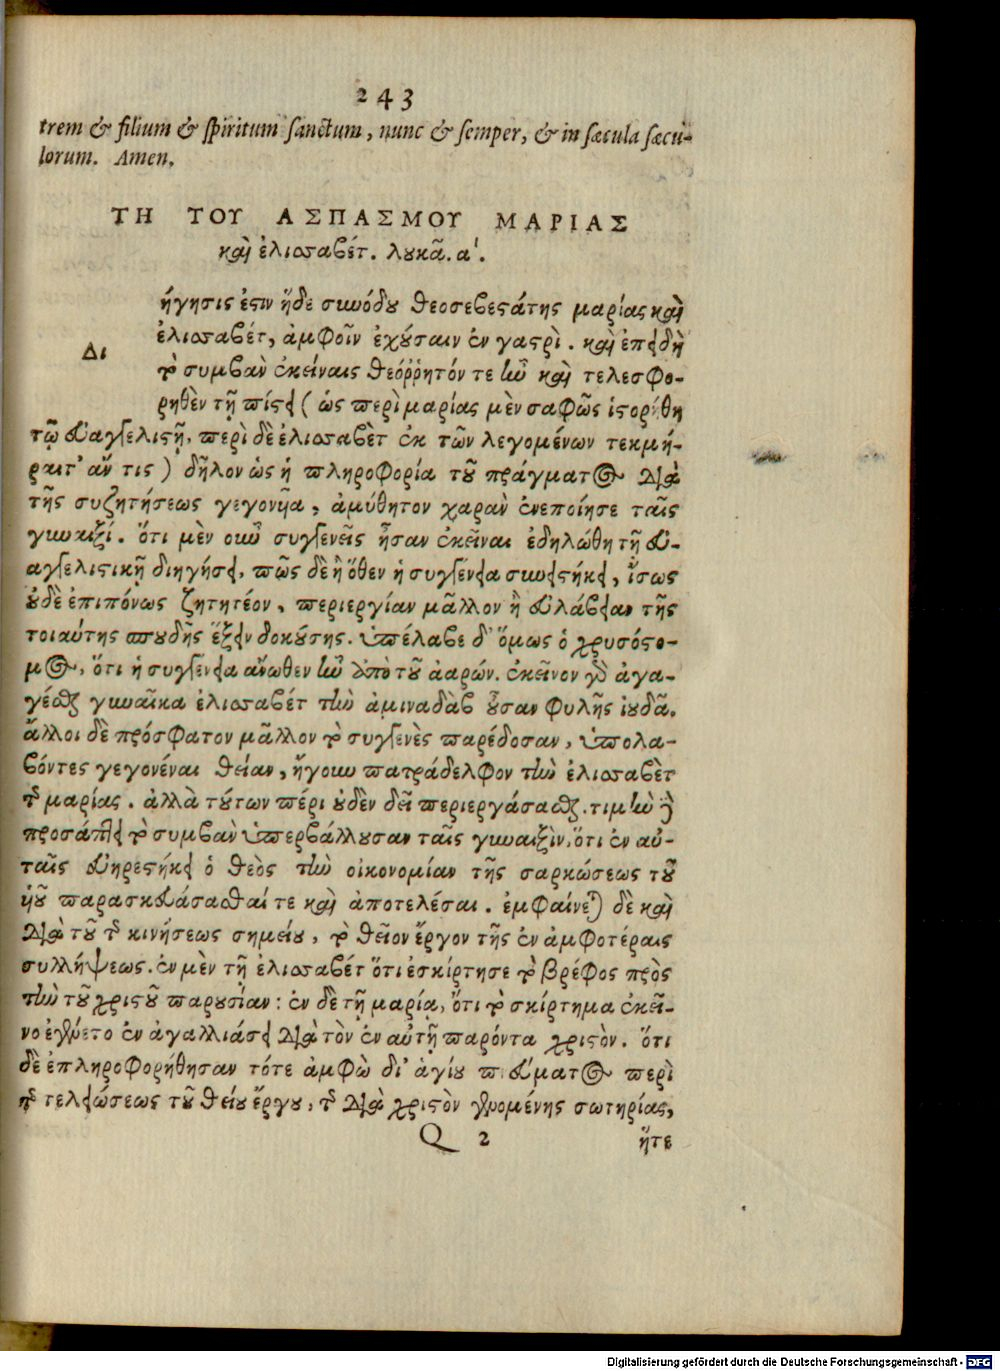 243
trem & filium & spiritum sanctum, nunc & semper, & in sæcula sæcu-
lorum. Amen.
ΤΗ ΤΟΥ ΑΣΠΑΣΜΟΥ ΜΑΡΙΑΣ
καὶ ἐλισσαβέτ. λουκᾶ. α΄.
Διήγησις ἐστιν ἥδε συνόδου θεοσεβεστάτης μαρίας καὶ
ἐλισσαβέτ, ἀμφοῖν ἐχούσαιν ἐν γαστρὶ. καὶ ἐπειδὴ
τὸ συμβὰν ἐκείναις θεόῤῥητόν τε ἦν καὶ τελεσφο-
ρηθὲν τῇ πίστει (ὡς περὶ μαρίας μὲν σαφῶς ἱστορήθη
τῷ εὐαγγελιστῇ, περὶ δὲ ἐλισσαβὲτ ἐκ τῶν λεγομένων τεκμή-
ραιτ' ἄν τις) δῆλον ὡς ἡ πληροφορία τοῦ πράγματος διὰ
τῆς συζητήσεως γεγονυῖα, ἀμύθητον χαρὰν ἐνεποίησε ταῖς
γυναιξί. ὅτι μὲν οὖν συγγενεῖς ἦσαν ἐκεῖναι ἐδηλώθη τῇ εὐ-
αγγελιστικῇ διηγήσει, πῶς δὲ ἢ ὅθεν ἡ συγγένεια συνειστήκει, ἴσως
οὐδὲ ἐπιπόνως ζητητέον, περιεργίαν μᾶλλον ἢ εὐλάβειαν τῆς
τοιαύτης σπουδῆς ἕξειν δοκούσης. ὑπέλαβε δ' ὅμως ὁ χρυσόστο-
μος, ὅτι ἡ συγγένεια ἄνωθεν ἦν ἀπὸ τοῦ ἀαρών. ἐκεῖνον γὰρ ἀγα-
γέσθαι γυναῖκα ἐλισσαβέτ τὴν ἀμιναδὰβ οὖσαν φυλῆς ἰουδᾶ.
ἄλλοι δὲ πρόσφατον μᾶλλον τὸ συγγενὲς παρέδοσαν, ὑπολα-
βόντες γεγονέναι θείαν, ἤγουν πατράδελφον τὴν ἐλισσαβὲτ
τῆς μαρίας. ἀλλὰ τούτων πέρι οὐδὲν δεῖ περιεργάσασθαι. τιμὴν δὲ
προσάπτει τὸ συμβὰν ὑπερβάλλουσαν ταῖς γυναιξὶν, ὅτι ἐν αὐ-
ταῖς εὐηρεστήκει ὁ θεὸς τὴν οἰκονομίαν τῆς σαρκώσεως τοῦ
υἱοῦ παρασκευάσασθαί τε καὶ ἀποτελέσαι. ἐμφαίνεται δὲ καὶ
διὰ τοῦ τῆς κινήσεως σημείου, τὸ θεῖον ἔργον τῆς ἐν ἀμφοτέραις
συλλήψεως. ἐν μὲν τῇ ἐλισσαβέτ ὅτι ἐσκίρτησε τὸ βρέφος πρὸς
τὴν τοῦ χριστοῦ παρουσίαν: ἐν δὲ τῇ μαρία, ὅτι τὸ σκίρτημα ἐκεῖ-
νο ἐγένετο ἐν ἀγαλλιάσει διὰ τὸν ἐν αὐτῇ παρόντα χριστὸν. ὅτι
δὲ ἐπληροφορήθησαν τότε ἀμφὼ δι' ἁγίου πνεύματος περὶ
τῆς τελειώσεως τοῦ θείου ἔργου, τῆς διὰ χριστὸν γενομένης σωτηρίας,
Q 2 ἥτε
Digitalisierung gefördert durch die Deutsche Forschungsgemeinschaft - DFG